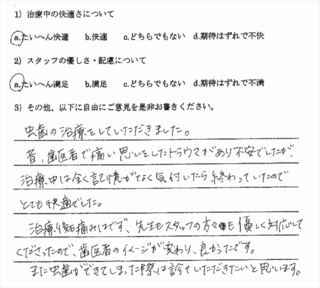 1) 治療中の快適さについて
a.たいへん快適 b.快適 c.どちらでもない d.期待はずれで不快
2) スタッフの優しさ・配慮について
a.たいへん満足 b.満足 c.どちらでもない d.期待はずれで不満
3) その他、以下に自由にご意見を是非お書きください。
虫歯の治療をしていただきました。
昔、歯医者で痛い思いをしたトラウマがあり不安でしたが、
治療中は全く記憶がなく気付いたら終わっていたので
とても快適でした。
治療後も痛みはでず、先生もスタッフの方々も優しく対応して
くださったので、歯医者のイメージが変わり、良かったです。
また虫歯ができてしまった際は診ていただきたいと思います。